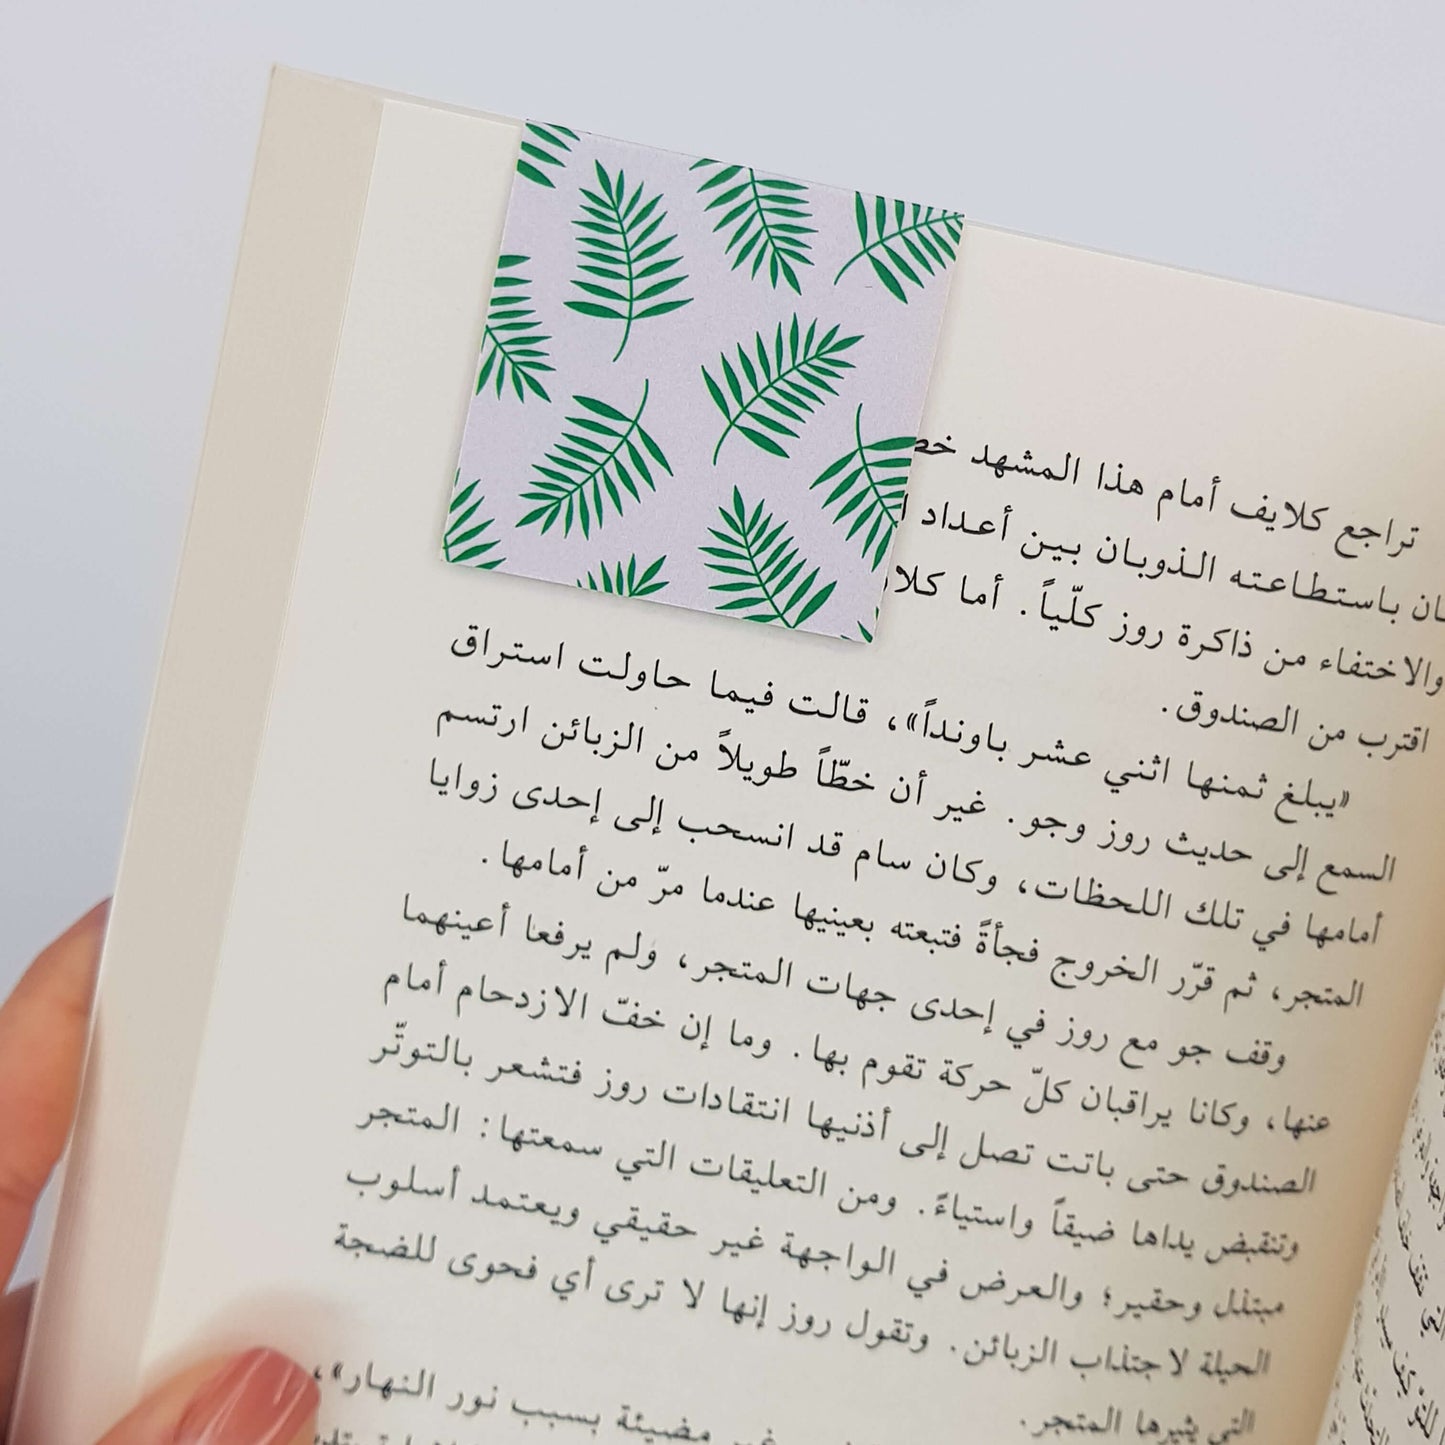 تراجع كلايف أمام هذا المشهد
باستطاعته الذوبان بين أعداد
والاختفاء من ذاكرة روز كلّياً. أما
اقترب من الصندوق.
«يبلغ ثمنها اثني عشر باونداً»، قالت فيما حاولت استراق
السمع إلى حديث روز وجو. غير أن خطّاً طويلاً من الزبائن ارتسم
أمامها في تلك اللحظات، وكان سام قد انسحب إلى إحدى زوايا
المتجر، ثم قرّر الخروج فجأةً فتبعته بعينيها عندما مرّ من أمامها.
وقف جو مع روز في إحدى جهات المتجر، ولم يرفعا أعينهما
عنها، وكانا يراقبان كلّ حركة تقوم بها. وما إن خفّ الازدحام أمام
الصندوق حتى باتت تصل إلى أذنيها انتقادات روز فتشعر بالتوتّر
وتنقبض يداها ضيقاً واستياءً. ومن التعليقات التي سمعتها: المتجر
مبتذل وحقير؛ والعرض في الواجهة غير حقيقي ويعتمد أسلوب
الحيلة لاجتذاب الزبائن. وتقول روز إنها لا ترى أي فحوى للضجة
التي يثيرها المتجر.
غير مضيئة بسبب نور النهار»،